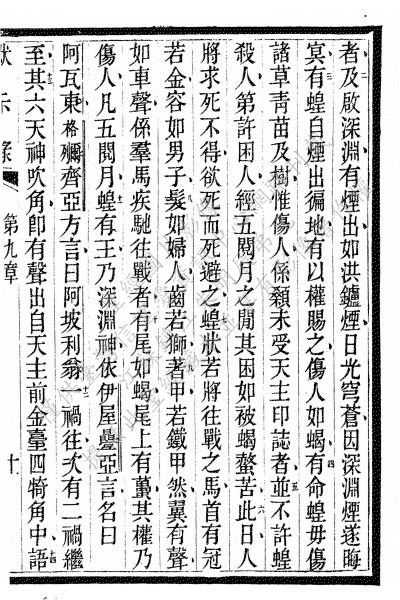 者及啟深淵有煙出如洪鑪煙日光穹蒼因深淵煙遂晦
冥有蝗自煙出徧地有以權賜之傷人如蝎有命蝗毋傷
諸草青苗及樹惟傷人係額未受天主印誌者並不許蝗
殺人第許困人經五閱月之閒其困如被蝎螫苦此日人
將求死不得欲死而死避之蝗狀若將往戰之馬首有冠
若金容如男子髮如婦人齒若獅著甲若鐵甲然翼有聲
如車聲係羣馬疾馳往戰者有尾如蝎尾上有蠆其權乃
傷人凡五閱月蝗有王乃深淵神依伊屋疊亞言名曰
阿瓦東格齊亞方言曰阿坡利翁一禍往次有二禍繼
至其六天神吹角卽有聲出自天主前金臺四犄角中語
默示錄 第九章 十